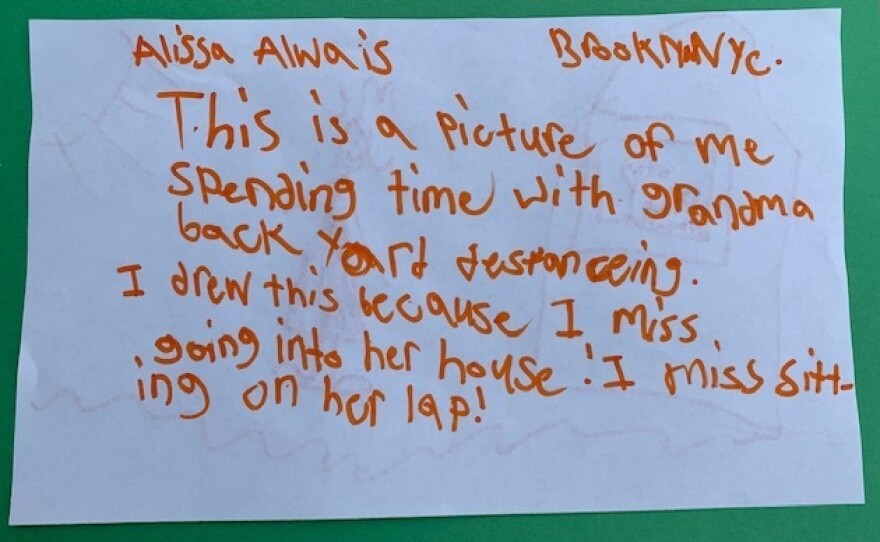 Alissa Alwais BrooklynNYc.
This is a picture of me
spending time with grandma
back yard destanceing.
I drew this because I miss
going into her house! I miss sitt-
ing on her lap!